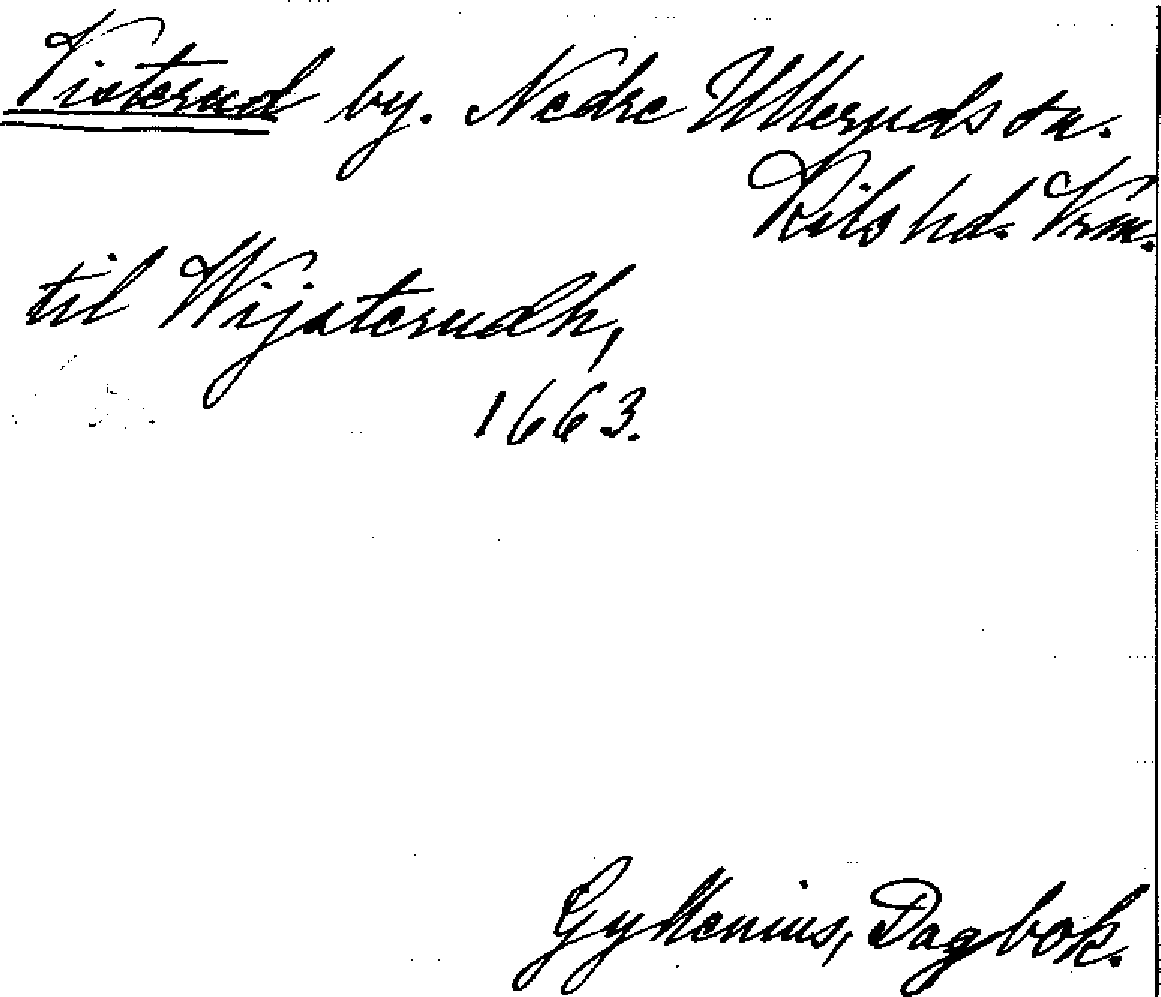 Visterud by. Nedre Ulleruds sn.
Kils hd. Vrm.
til Wijsterudh,
1663.
Gyllenius, Dagbok.